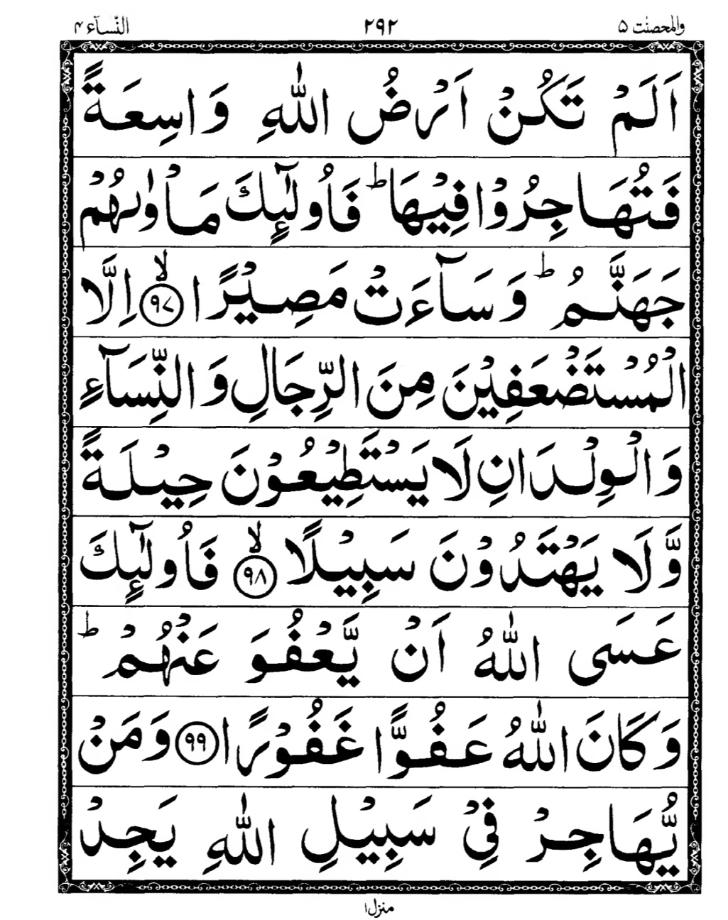 والمحصنٰت ۵ ۲۹۲ النّسآء ۴
اَلَمْ تَكُنْ اَرْضُ اللّٰهِ وَاسِعَةً
فَتُهَاجِرُوْا فِيْهَا ؕ فَاُولٰٓئِكَ مَاْوٰىهُمْ
جَهَنَّمُ ؕ وَسَآءَتْ مَصِيْرًا ۙ‏﴿۹۷﴾ اِلَّا
الْمُسْتَضْعَفِيْنَ مِنَ الرِّجَالِ وَ النِّسَآءِ
وَالْوِلْدَانِ لَا يَسْتَطِيْعُوْنَ حِيْلَةً
وَّلَا يَهْتَدُوْنَ سَبِيْلًا ۙ‏﴿۹۸﴾ فَاُولٰٓئِكَ
عَسَى اللّٰهُ اَنْ يَّعْفُوَ عَنْهُمْ ؕ
وَكَانَ اللّٰهُ عَفُوًّا غَفُوْرًا ﴿۹۹﴾ وَمَنْ
يُّهَاجِرْ فِيْ سَبِيْلِ اللّٰهِ يَجِدْ
منزل۱